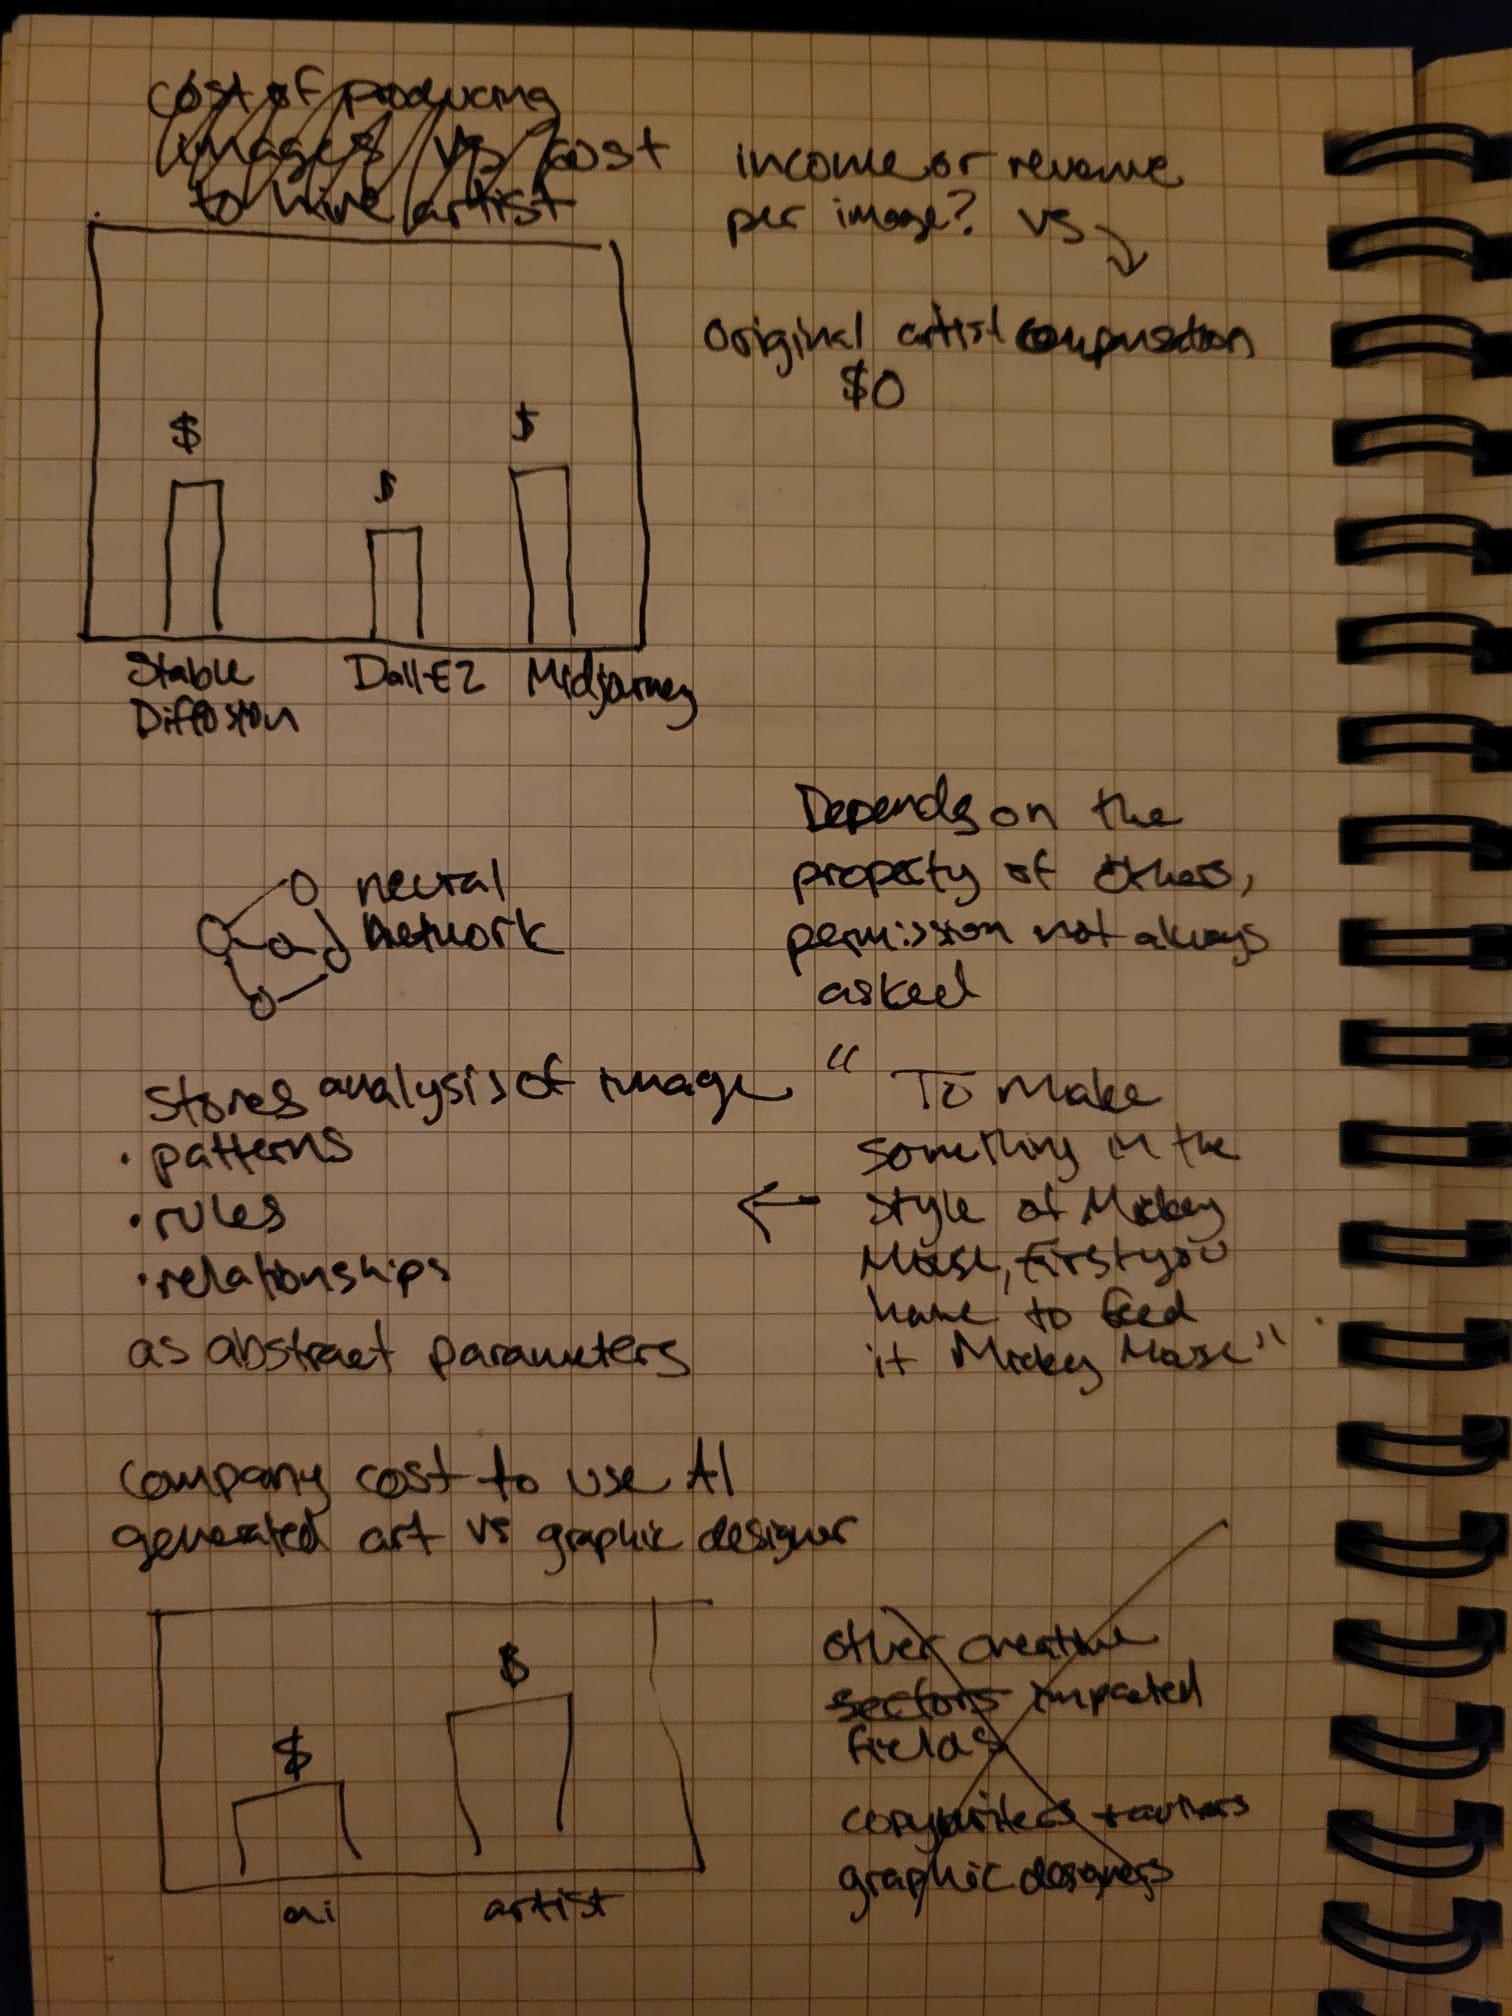 cost of producing
images vs cost
to hire artist
income or revenue
per image? vs
original artist compensation
$0
$
$
$
Stable
Diffusion
Dall-E2
Midjourney
neural
network
Depends on the
property of others,
permission not always
asked
Stores analysis of image
• patterns
• rules
• relationships
as abstract parameters
" To make
something in the
style of Mickey
Mouse, first you
have to feed
it Mickey Mouse"
company cost to use AI
generated art vs graphic designer
$
$
ai
artist
other creative
sectors impacted
fields
copywriters + authors
graphic designers